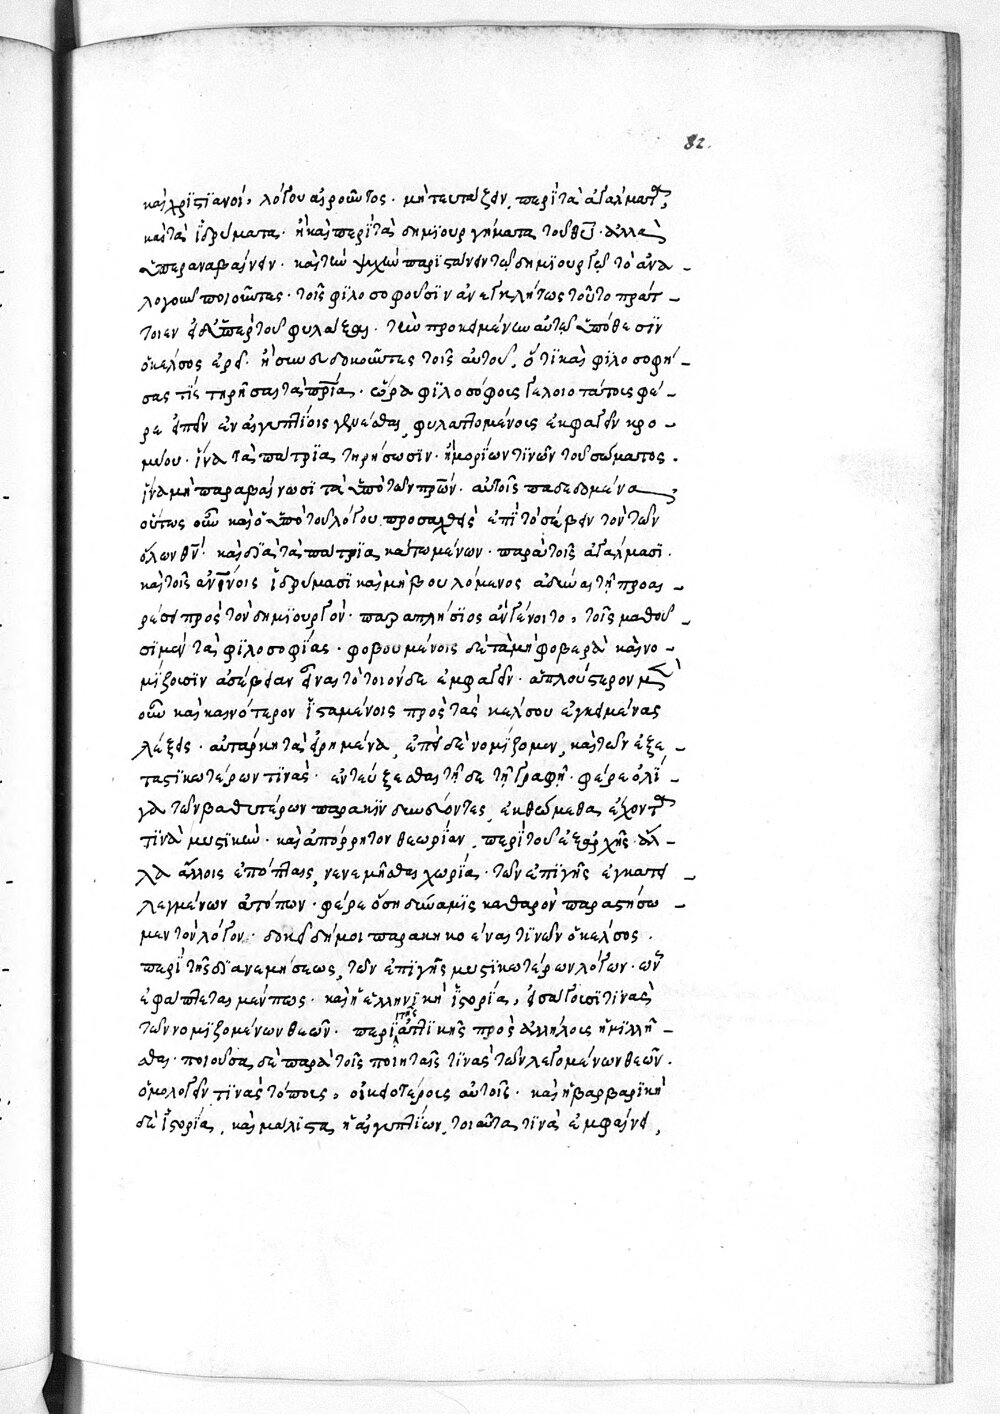 82.
καὶ χριστιανοὶ, λόγου αἱροῦντος· μήτευτάζειν περὶ τὰ ἀγάλματα,
καὶ τὰ ἱδρύματα· ἢ καὶ περὶ τὰ δημιουργήματα τοῦ θυ· ἀλλὰ
ὑπεραναβαίνειν· καὶ τὴν ψυχὴν παριστάνειν τῷ δημιουργῷ τὸ ἀνά-
λογον ποιοῦντας· τοῖς φιλοσοφοῦσιν ἀνεγκλήτως τοῦτο πράτ-
τοιεν
ὁ κέλσος ἐρεῖ· ἢ συνδιδοκοῦντες τοῖς αὐτοῦ, ὅτι καὶ φιλοσοφή-
σας τὶς τηρήσαι τὰ πρια· ὥρα φιλοσόφοις γελοιοτάτοις φέ-
ρε εἰπεῖν ἐν αἰγυπτίοις γενέσθαι, φυλαττομένοις ἐκφαγεῖν κρο-
μύου· ἵνα τὰ πάτρια τηρήσωσιν· ἢ μορίων τινῶν τοῦ σώματος.
ἵνα μὴ παραβαίνωσι τὰ ὑπὸ τῶν πρων· αὐτοῖς παραδεδομένα
οὕτως οὖν καὶ ὁ ὑπὸ τοῦ λόγου προσαχθεὶς ἐπὶ τὸ σέβειν τὸν τῶν
ὅλων θν· καὶ διὰ τὰ πάτρια κάτω μένων· παρὰ τοῖς ἀγάλμασι.
καὶ τοῖς ἀνινοις ἱδρύμασι καὶ μὴ βουλόμενος ἀναβῆναι τῇ προαι-
ρέσει πρὸς τὸν δημιουργὸν· παραπλήσιος ἂν γένοιτο, τοῖς μαθοῦ-
σι μὲν τὰ φιλοσοφίας· φοβουμένοις δὲ τὰ μὴ φοβερὰ καὶ νο-
μίζουσιν ἀσέβειαν εἶναι τὸ τοιόνδε ἐμφαγεῖν· ἁπλούστερον μὲν
οὖν καὶ κοινότερον ἱσταμένοις πρὸς τὰς κέλσου ἐγκειμένας
λέξεις· αὐτάρκη τὰ εἰρημένα, ἐπεὶ δὲ νομίζομεν, καὶ τῶν ἐξε-
ταστικωτέρων τινὰς· ἐντεύξεσθαι τῇδε τῇ γραφῇ· φέρε ὀλί-
γα τῶν βαθυτέρων παρακινδυνεύοντες, ἐκθώμεθα, ἔχοντα
τινὰ μυστικὴν· καὶ ἀπόρρητον θεωρίαν, περὶ τοῦ ἐξ ἀρχῆς· ἄλ-
λα ἄλλοις ἐπόπταις, νενεμῆσθαι χωρία· τῶν ἐπὶ γῆς ἐγκατει-
λεγμένων ἀτόπων· φέρε ὅση δύναμις καθαρὸν παραστήσω-
μεν τὸν λόγον· δοκεῖ δή μοι παρακηκοέναι τινῶν ὁ κέλσος.
περὶ τῆς διανεμήσεως, τῶν ἐπὶ γῆς μυστικωτέρων λόγων· ὧν
ἐφάπτεται μέν πως· καὶ ἡ ἑλληνικὴ ἱστορία, εἰσάγουσι τινὰς
τῶν νομιζομένων θεῶν· περὶ τῆς ἀττικῆς πρὸς ἀλλήλοις ἡμιλλῆ-
σθαι· ποιοῦσα δὲ παρὰ τοῖς ποιηταῖς τινὰς τῶν λεγομένων θεῶν.
ὁμολογεῖν τινὰς τόπους, οἰκειοτέροις αὐτοῖς· καὶ ἡ βαρβαρικὴ
δὲ ἱστορία, καὶ μάλιστα ἡ αἰγυπτίων, τοιαῦτα τινὰ ἐμφαίνει,